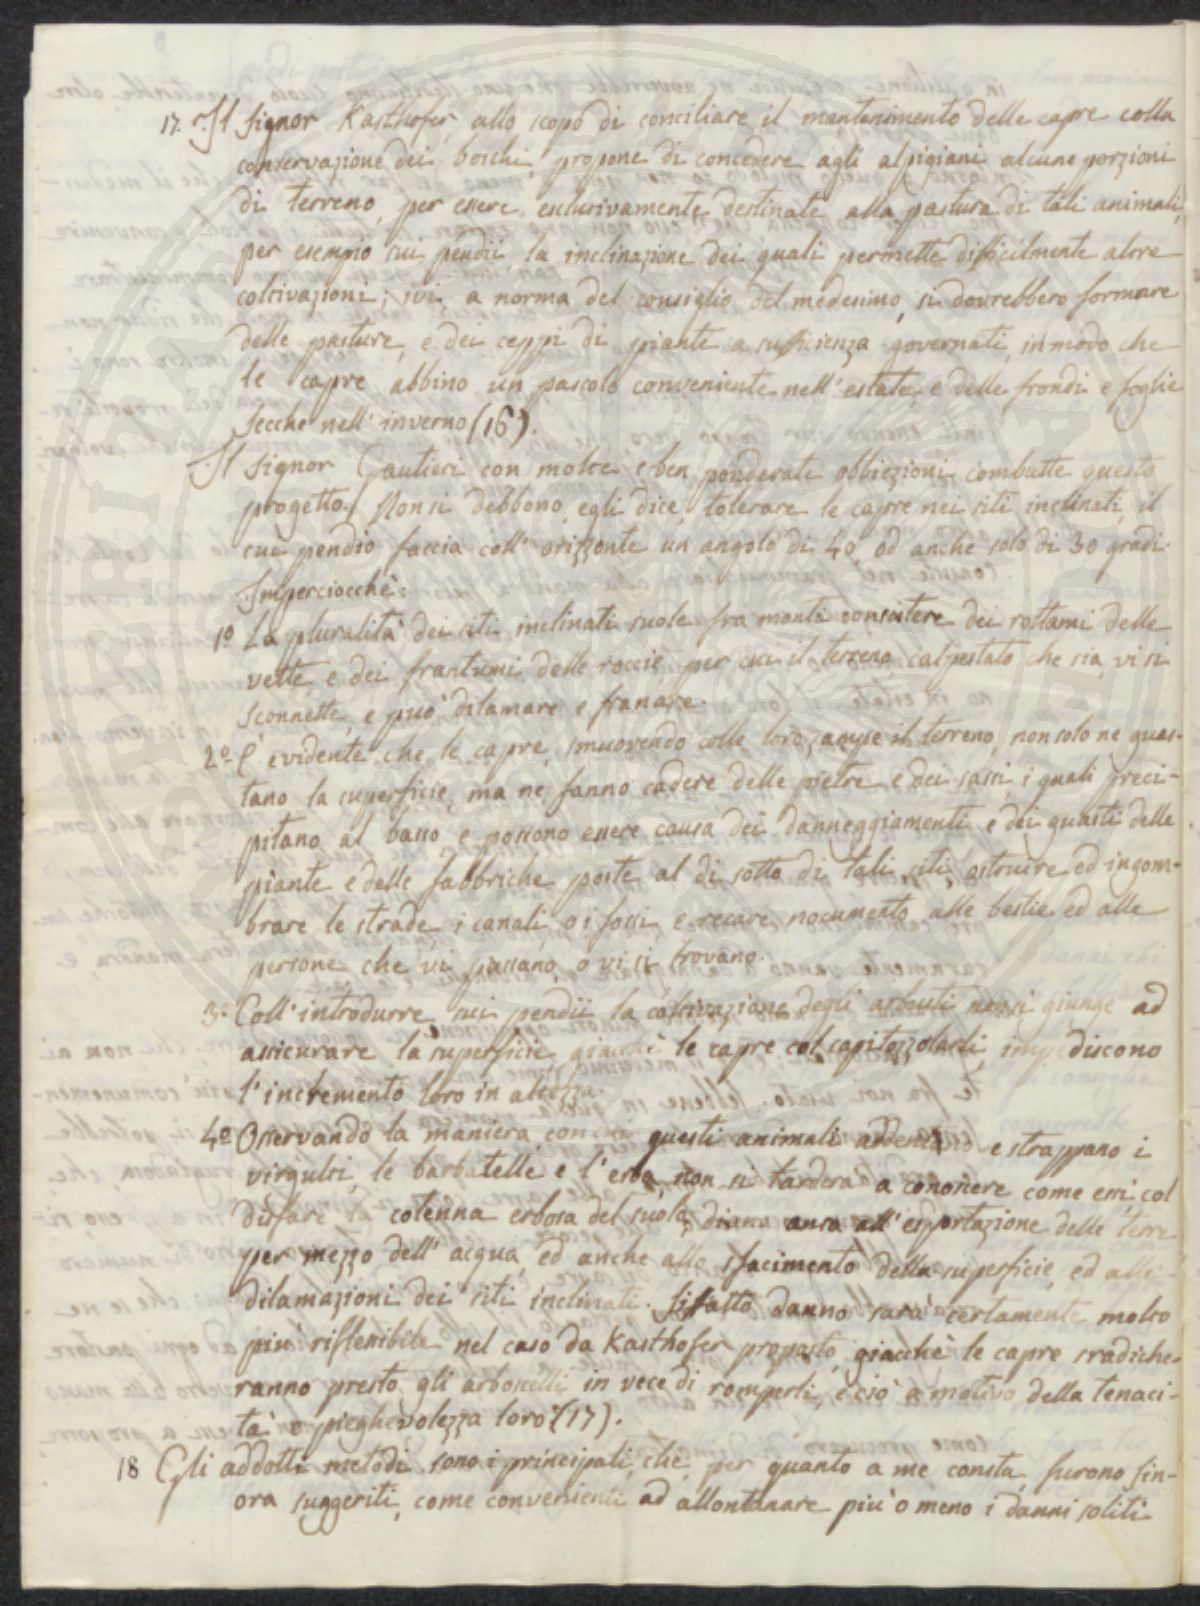 17. Il Signor Kasthofer, allo scopo di conciliare il mantenimento delle capre colla
conservazione dei boschi, propone di concedere agli alpigiani alcune porzioni
di terreno, per essere esclusivamente destinate alla pastura di tali animali,
per esempio sui pendii, la inclinazione dei quali permette difficilmente altre
coltivazioni; ivi, a norma del consiglio del medesimo, si dovrebbero formare
delle pasture, e dei ceppi di piante a sufficienza governati, in modo che
le capre abbino un pascolo conveniente nell' estate, e delle frondi e foglie
secche nell' inverno (16).
Il Signor Gautieri con molte e ben ponderate obbiezioni combatte questo
progetto. Non si debbono, egli dice, tolerare le capre nei siti inclinati, il
cui pendio faccia coll' orizzonte un angolo di 40, od anche solo di 30 gradi.
Imperciocchè:
1º La pluralità dei siti inclinati suole fra monti consistere dei rottami delle
vette, e dei frantumi delle roccie, per cui il terreno, calpestato che sia, vi si
sconnette, e può dilamare e franare.
2º È evidente che le capre, smuovendo colle loro zampe il terreno, non solo ne guas-
tano la superficie, ma ne fanno cadere delle pietre e dei sassi, i quali preci-
pitano al basso, e possono essere causa dei danneggiamenti e dei guasti delle
piante e delle fabbriche poste al di sotto di tali siti, ostruire ed ingom-
brare le strade, i canali, o i fossi, e recare nocumento alle bestie ed alle
persone che vi passano, o vi si trovano.
3º Coll' introdurre sui pendii la coltivazione degli arbusti non si giunge ad
assicurare la superficie, giacchè le capre col capitozzolarli, impediscono
l' incremento loro in altezza.
4º Osservando la maniera con cui questi animali addentano e strappano i
virgulti, le barbatelle, e l' erba, non si tarderà a conoscere come essi col
disfare la cotenna erbosa del suolo, diano ansa all' esportazione delle terre
per mezzo dell' acqua, ed anche allo sfacimento della superficie, ed alle
dilamazioni dei siti inclinati. Siffatto danno sarà certamente molto
più riflessibile nel caso da Kasthofer proposto, giacchè le capre sradiche-
ranno presto gli arboscelli in vece di romperli, e ciò a motivo della tenaci-
tà e pieghevolezza loro (17).
18 Gli addotti metodi sono i principali, che, per quanto a me consta, furono fin-
ora suggeriti, come convenienti ad allontanare più o meno i danni soliti